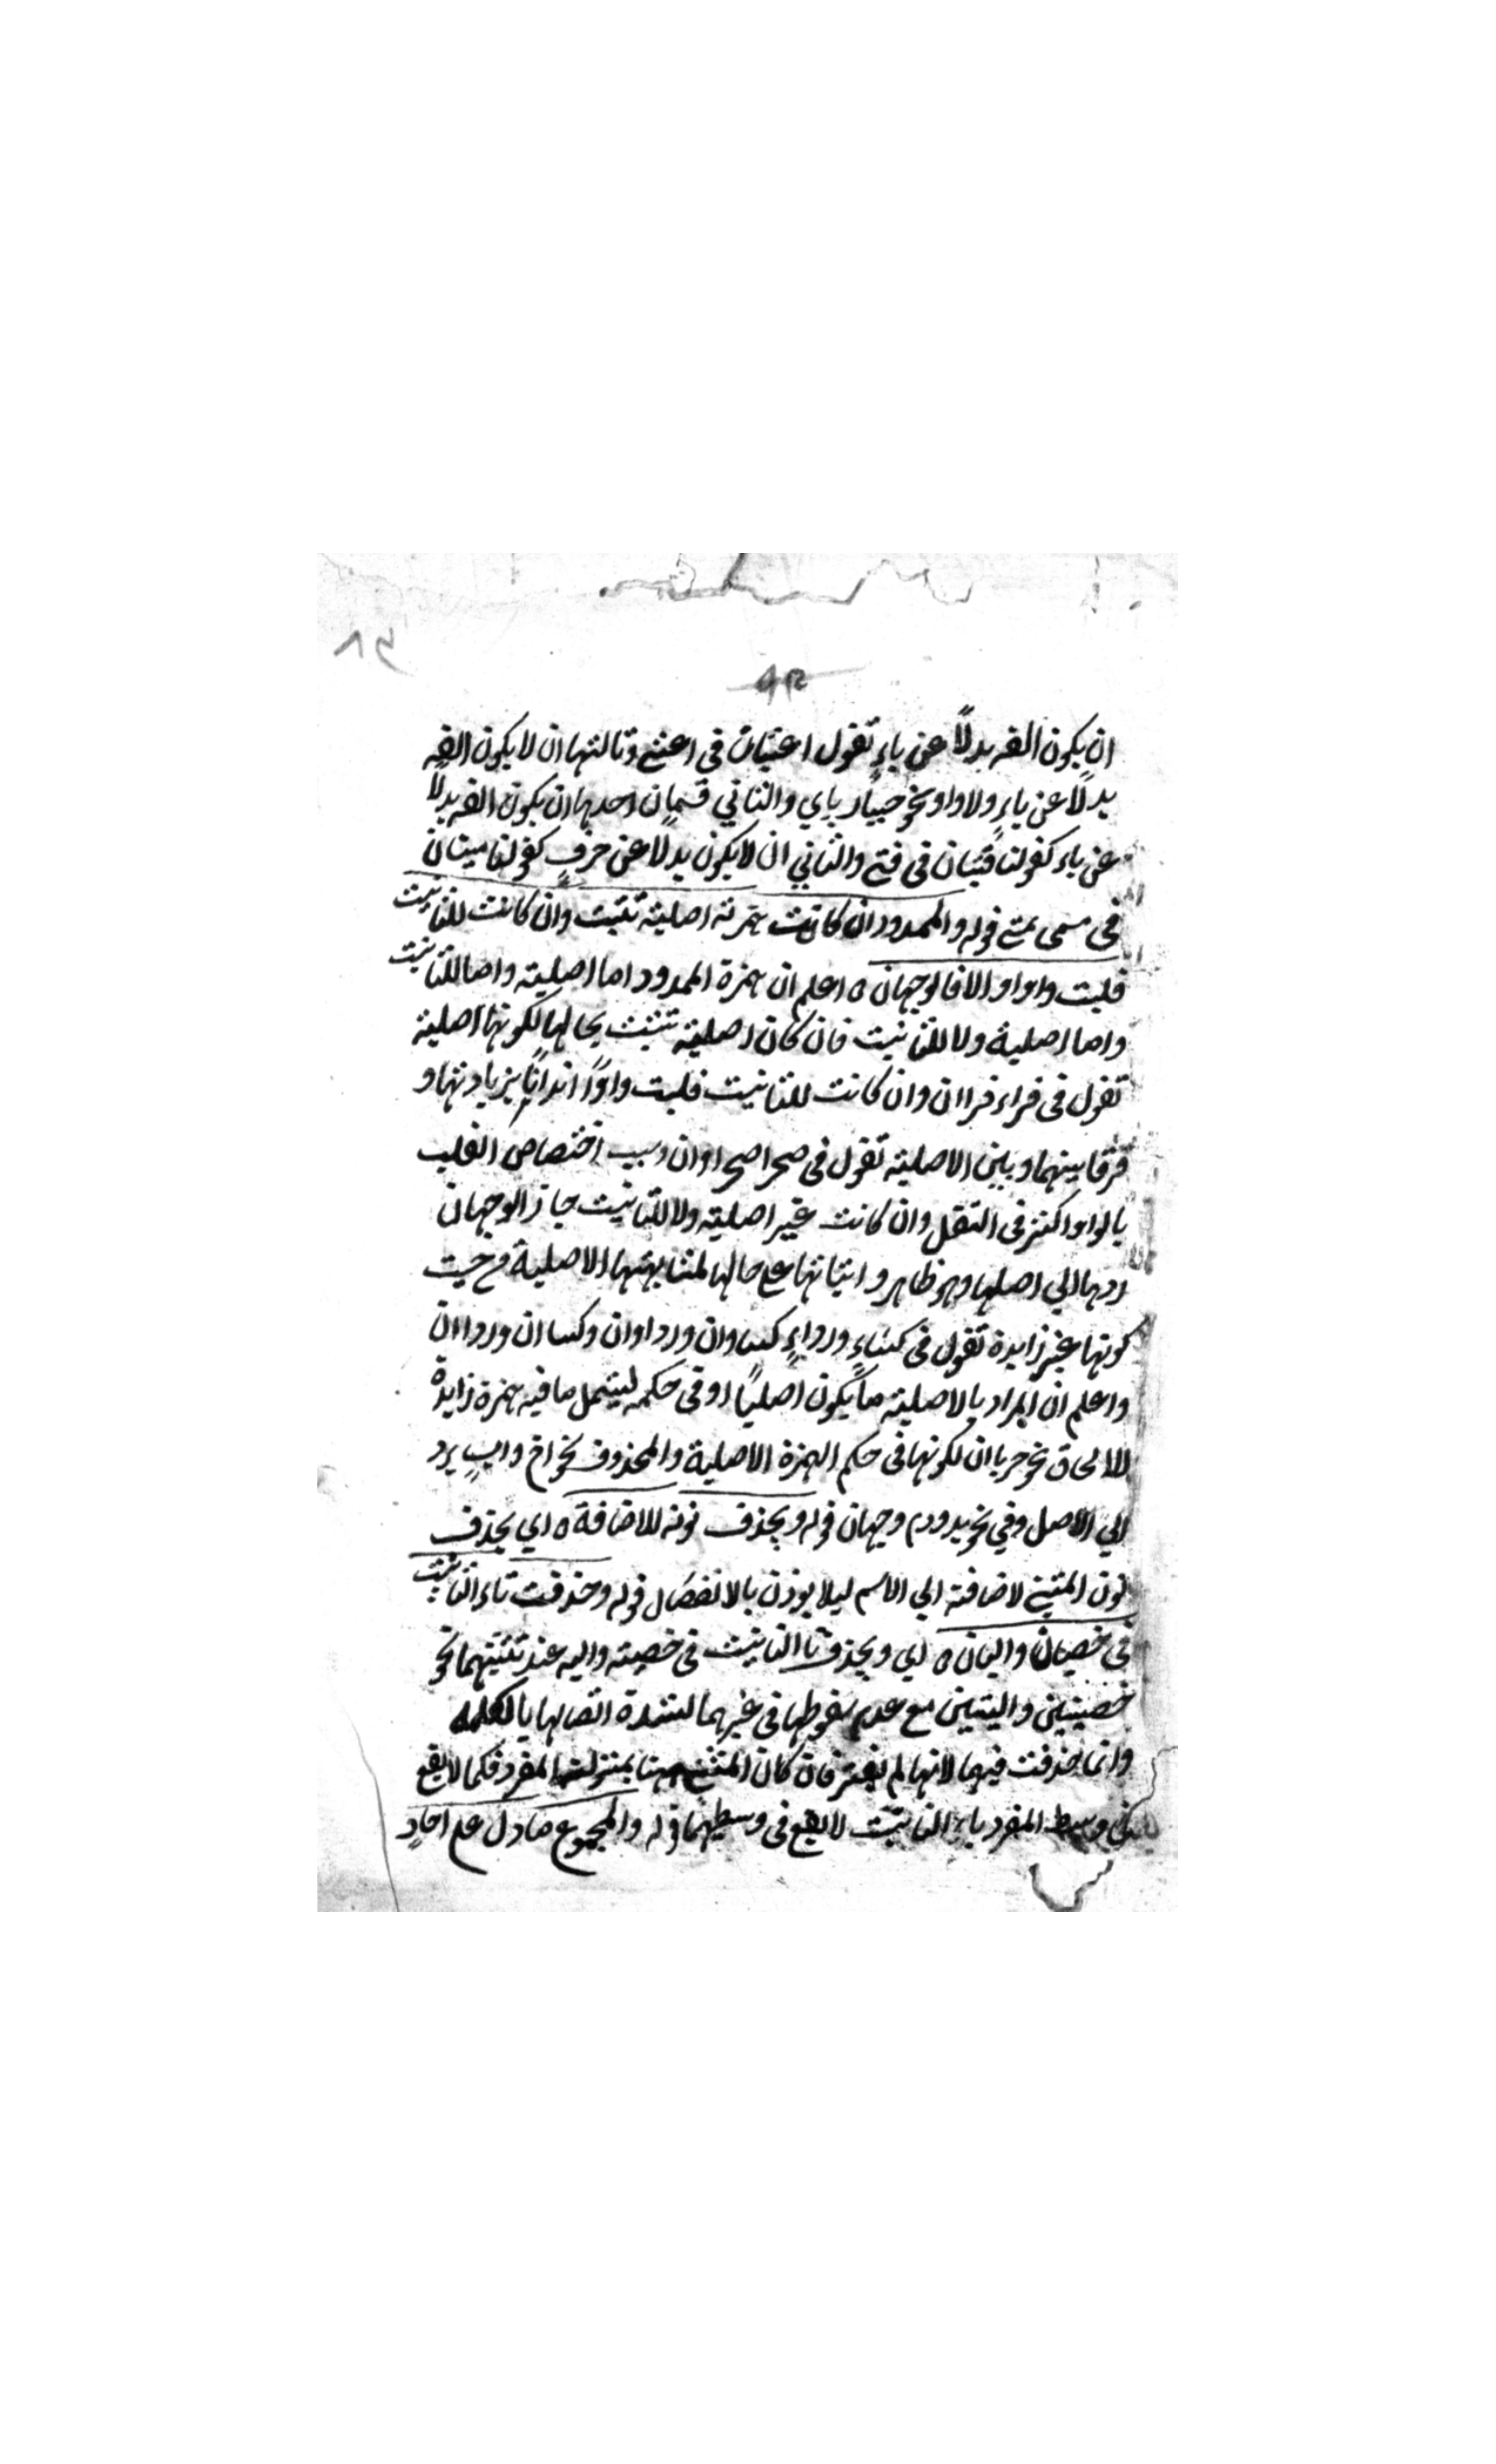 ٨٤
٩٢
ان يكون الفه بدلًا عن ياءٍ تقول اعشيان في اعشى وثالثها ان لا يكون الفه
بدلًا عن ياءٍ ولا واو نحو حباري والثاني قسمان احدها ان يكون الفه بدلًا
عن ياء كقولنا فتيان في فتى والثاني ان لا يكون بدلا عن حرفٍ كقولنا ميتان
في مسمى بمتى قوله والممدود ان كانت همزته اصلية تثبت وان كانت للتانيث
قلبت واوا والا فالوجهان ٥ اعلم ان همزة الممدود اما اصلية واما للتانيث
واما اصلية ولا للتانيث فان كان اصلية تثبت بحالها لكونها اصلية
تقول في قراء قراان وان كانت للتانيث قلبت واوًا ايذانًا بزيادتها و
فرقا بينهما وبين الاصلية تقول في صحرا صحراوان وسبب اختصاص القلب
بالواو اكثر في الثقل وان كانت غير اصلية ولا للتانيث جاز الوجهان
ردها الي اصلها وهو ظاهر و اثباتها على حالها لمشابهتها الاصلية من حيث
كونها غير زايدة تقول في كساءٍ ورداءٍ كساوان ورداوان وكساان ورداان
واعلم ان المراد بالاصلية ما يكون اصليًا او في حكمه ليشمل ما فيه همزة زايدة
للالحاق نحو حرباان لكونها في حكم الهمزة الاصلية والمحذوف نحو اخ وابٍ يرد
الي الاصل وفي نحو يد ودم وجهان قوله ويحذف نونه للاضافة ٥ اي يحذف
نون المثنى لاضافته الي الاسم ليلا يوذن بالانفصال قوله وحذفت تاء التانيث
في خصيان واليان ٥ اي ويحذف تا التانيث في خصية والية عند تثنيتهما نحو
خصيتين واليتين مع عدم سقوطها في غيرهما لشدة اتصالها بالكلمة
وانما حذفت فيهما لانها لم فان كان المثنى هنا بمنزلة المفرد فكما لا يقع
في وسط المفرد تاء التانيث لا يقع في وسطهما قوله والمجموع ما دل على احادٍ